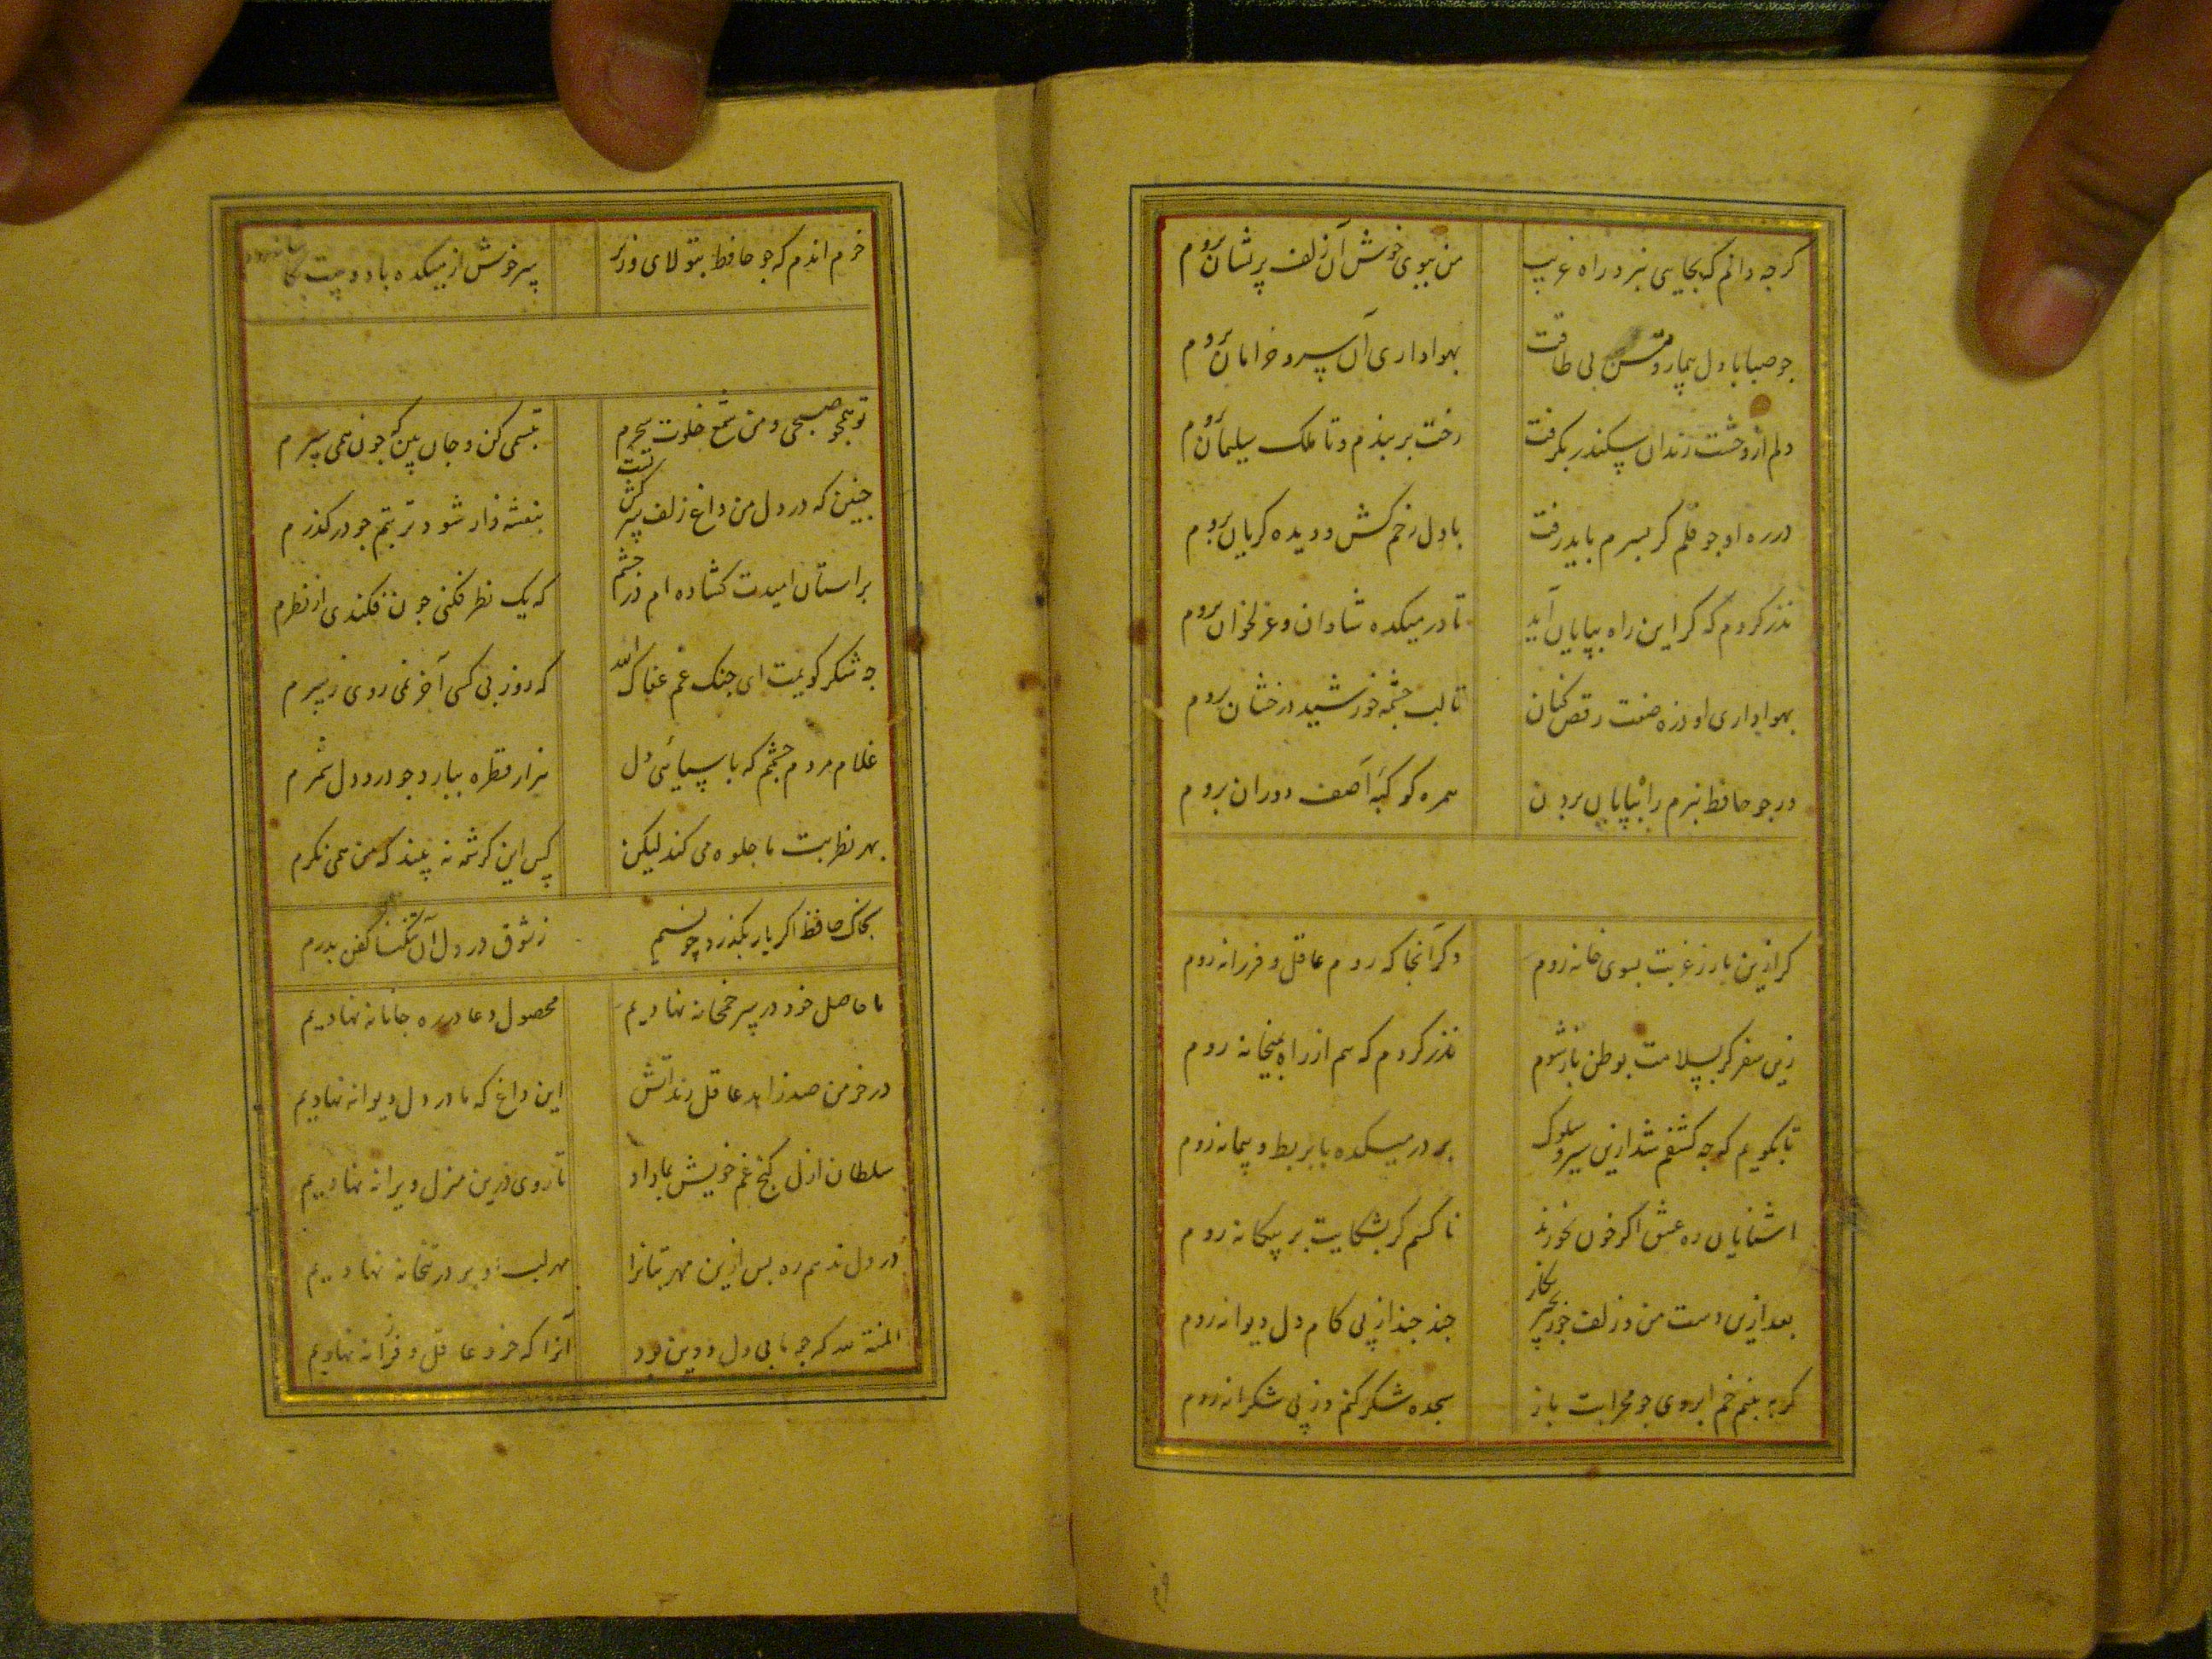 کرجه دانم که بجایی نبرد راه غریب من ببوی خوش آن زلف پریشان بروم
جو صبا با دل بیمار و تن بی طاقت بهواداری آن سرو خرامان بروم
دلم از وحشت زندان سکندر بکرفت رخت بربندم و تا ملک سلیمان بروم
در ره او جو قلم کر بسرم باید رفت با دل زخم کش و دیده کریان بروم
نذر کردم که کر این راه بپایان آید تا در میکده شادان و غزلخوان بروم
بهواداری او ذره صفت رقص کنان تا لب جشمه خورشید درخشان بروم
ور جو حافظ نبرم راه بپایان بردن همره کوکبه آصف دوران بروم
کر ازین بار ز غربت بسوی خانه روم دکر آنجا که روم عاقل و فرزانه روم
زین سفر کر بسلامت بوطن باز شوم نذر کردم که هم از راه بمیخانه روم
تا بکویم که جه کشفم شد ازین سیر و سلوک بر در میکده با بربط و پیمانه روم
اشنایان ره عشق اکر خون بخورند ناکسم کر بشکایت بر بیکانه روم
بعد ازین دست من و زلف جو زنجیر نکار جند جند از پی کام دل دیوانه روم
کر به بینم خم ابروی جو محرابت باز سجده شکر کنم وز پی شکرانه روم
خرم اندم که جو حافظ بتولای وزیر سرخوش از میکده با دوست بکاشانه روم
تو همجو صبحی و من شمع خلوت سحرم تبسمی کن و جان بین که جون همی سپرم
جنین که در دل من داغ زلف سرکش تست بنفشه زار شود تربتم جو درکذرم
بر استان امیدت کشاده ام در جشم که یک نظر فکنی جون فکندی از نظرم
جه شکر کویمت ای جنک غم عفاک الله که روز بی کسی آخر نمی روی ز سرم
غلام مردم جشمم که با سیاهی دل هزار قطره ببارد جو درد دل شمرم
بهر نظر بت ما جلوه می کند لیکن کس این کرشمه نه بیند که من همی نکرم
بخاک حافظ اکر یار بکذرد چو نسیم ز شوق در دل آن تنکنا کفن بدرم
ما حاصل خود در سر خمخانه نهادیم محصول دعا در ره جانانه نهادیم
در خرمن صد زاهد عاقل زند اتش این داغ که ما در دل دیوانه نهادیم
سلطان ازل کنج غم خویش بما داد تا روی درین منزل ویرانه نهادیم
در دل ندهم ره پس ازین مهر بتانرا مهر لب او بر در بتخانه نهادیم
المنة لله که جو ما بی دل و دین بود آنرا که خرد عاقل و فرزانه نهادیم